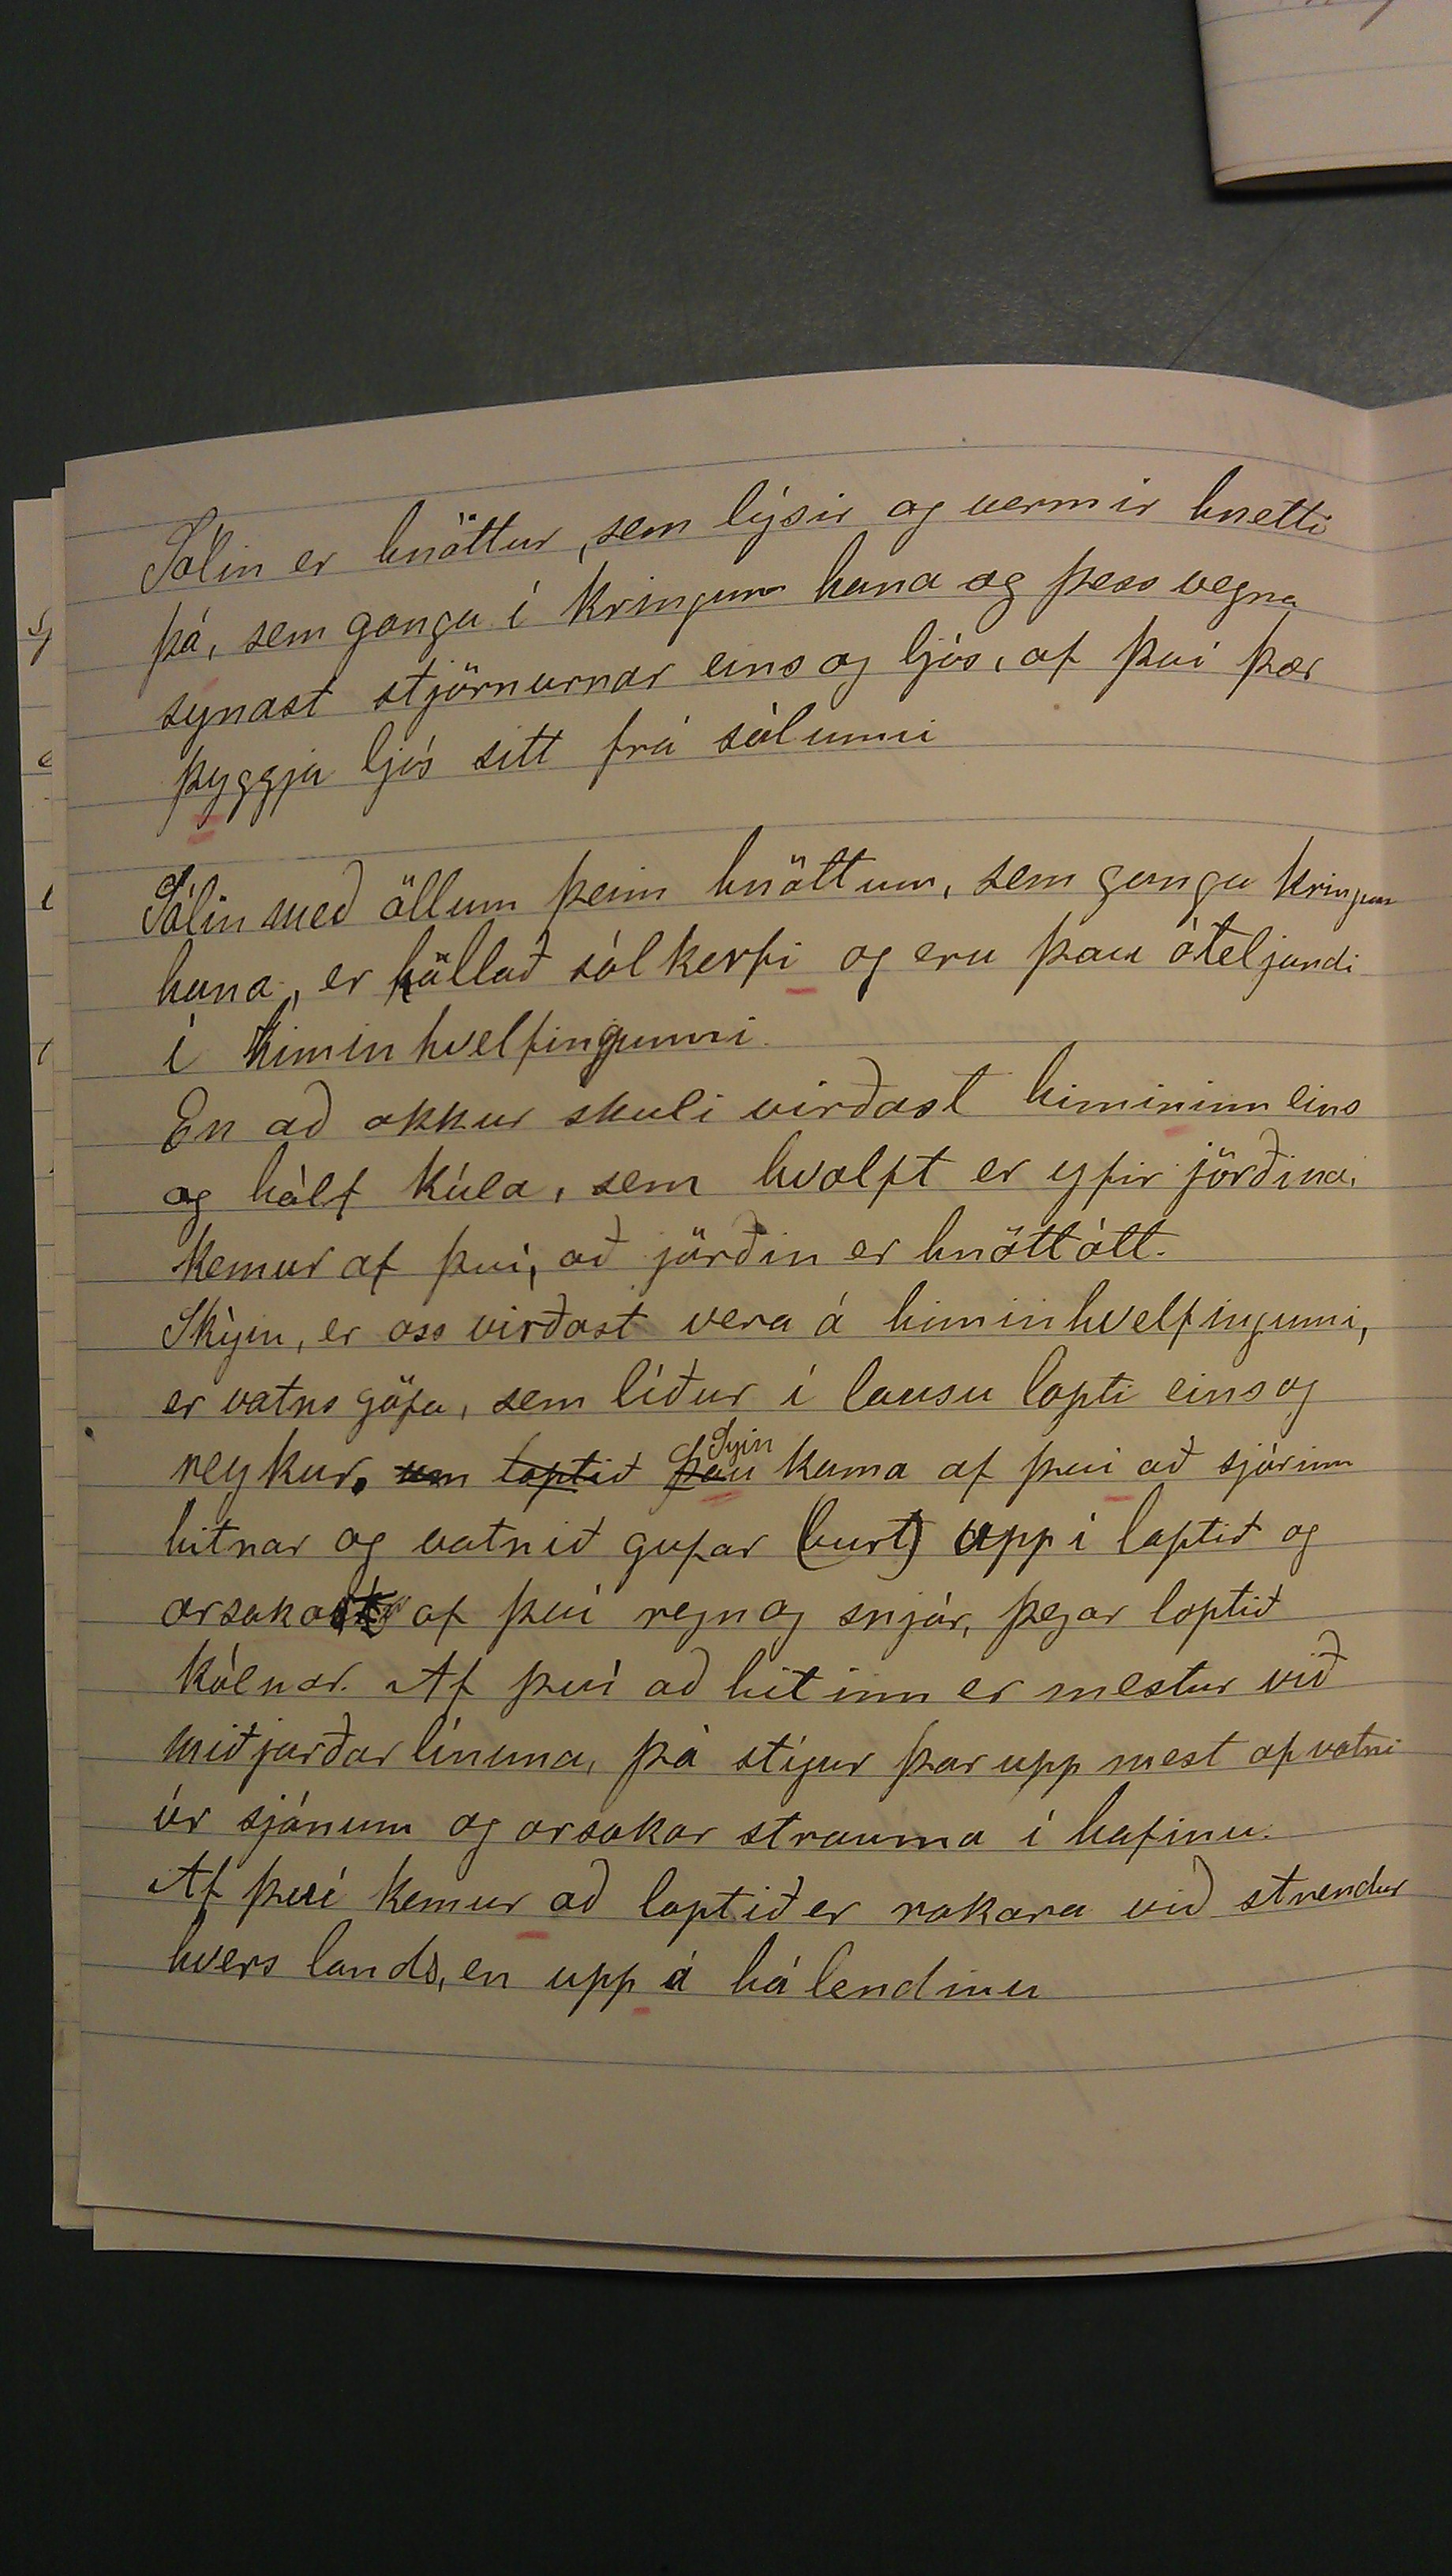 Sólin er hnöttur, sem lýsir og vermir hnetti
þá, sem ganga í kringum hana og þess vegna
synast stjörnurnar eins og ljós, af því þær
þyggja ljós sitt frá sólunni
Sólin með öllum þeim hnöttum, sem ganga kringum
hana, er kölluð sólkerfi og eru þau óteljandi
í himinhvelfingunni.
En að okkur skuli virðast himininn eins
og hálf kúla, sem hvolft er yfir jörðina,
kemur af því, að jörðin er hnöttótt.
Skýin, er oss virðast vera á himinhvelfingunni,
er vatnsgufa, sem líður í lausu lopti eins og
reykur. um loptið þau Skýin koma af því að sjórinn
hitnar og vatnið gufar (burt) upp í loptið og
orsakast af því regn og snjór, þegar loptið
kólnar. Af því að hitinn er mestur við
miðjarðarlínuna, þá stígur þar upp mest af vatni
úr sjónum og orsakar strauma í hafinu.
Af því kemur að loptið er rakara við strendur
hvers lands, en upp á hálendinu